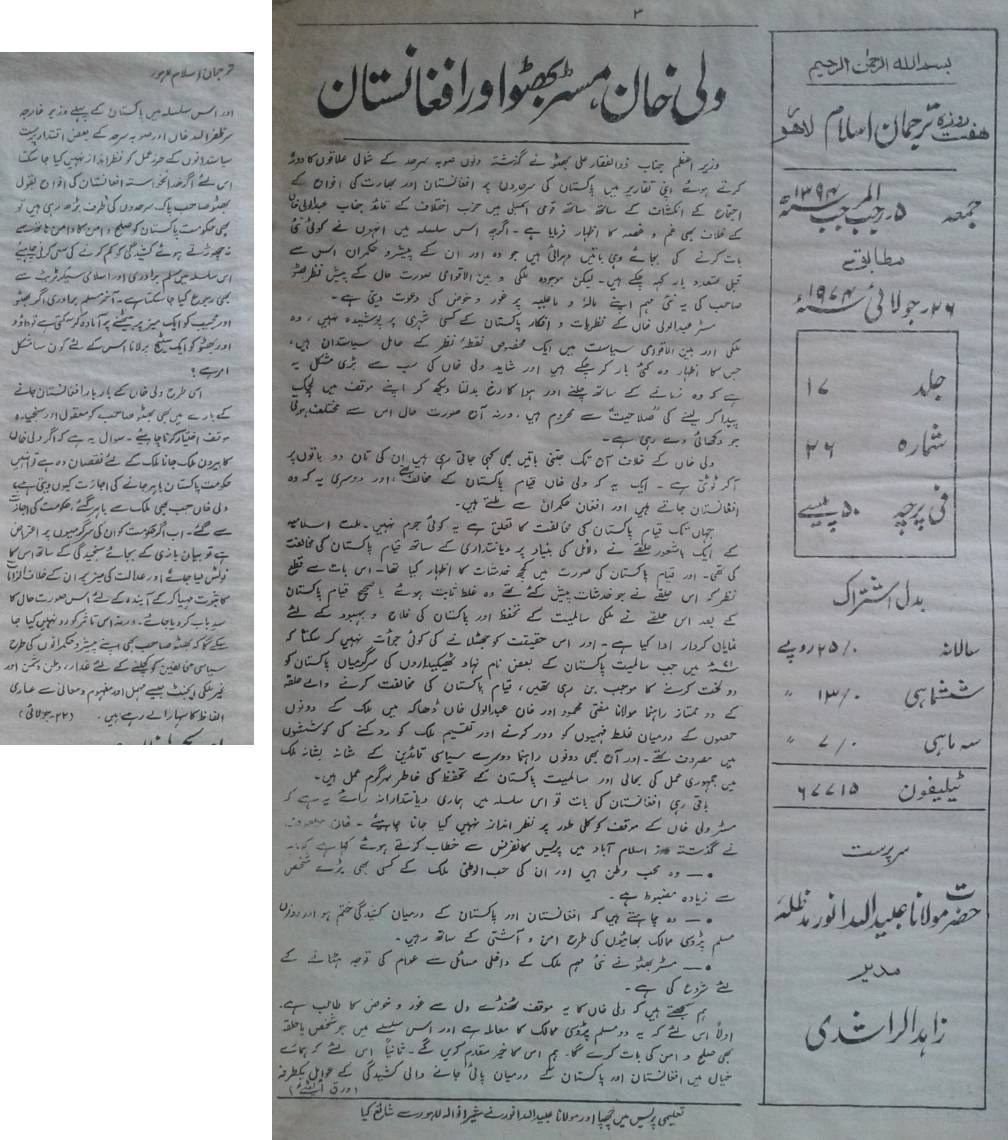 ۳
بسم الله الرحمن الرحیم
ہفت روزہ ترجمان اسلام لاہور
جمعہ ۵ر رجب المرجب ۱۳۹۴ھ
مطابق
۲۶ر جولائی ۱۹۷۴ء
جلد ۱۷
شمارہ ۲۶
فی پرچہ ۵۰ پیسے
بدل اشتراک
سالانہ ۲۵/۰ روپے
ششماہی ۱۳/۰ "
سہ ماہی ۷/۰ "
ٹیلیفون ۶۷۷۱۵
سرپرست
حضرت مولانا عبیداللہ انور مدظلہ
مدیر
زاہد الراشدی
ولی خان، مسٹر بھٹو اور افغانستان
وزیر اعظم جناب ذوالفقار علی بھٹو نے گذشتہ دنوں صوبہ سرحد کے شمالی علاقوں کا دورہ
کرتے ہوئے اپنی تقاریر میں پاکستان کی سرحدوں پر افغانستان اور بھارت کی افواج کے
اجتماع کے انکشاف کے ساتھ ساتھ قومی اسمبلی میں حزب اختلاف کے قائد جناب عبدالولی خان
کے خلاف بھی غم و غصہ کا اظہار فرمایا ہے۔ اگرچہ اس سلسلہ میں انہوں نے کوئی نئی
بات کرنے کی بجائے وہی باتیں دہرائی ہیں جو وہ اور ان کے پیشرو حکمران اس سے
قبل متعدد بار کہہ چکے ہیں۔ لیکن موجودہ ملکی و بین الاقوامی صورت حال کے پیش نظر بھٹو
صاحب کی یہ نئی مہم اپنے مالہ و ماعلیہ پر غور و خوض کی دعوت دیتی ہے۔
مسٹر عبدالولی خاں کے نظریات و افکار پاکستان کے کسی شہری پر پوشیدہ نہیں، وہ
ملکی اور بین الاقوامی سیاست میں ایک مخصوص نقطۂ نظر کے حامل سیاستدان ہیں،
جس کا اظہار وہ کئی بار کر چکے ہیں اور شاید ولی خاں کی سب سے بڑی مشکل یہ
ہے کہ وہ زمانے کے ساتھ چلنے اور ہوا کا رخ بدلتا دیکھ کر اپنے موقف میں لچک
پیدا کر لینے کی "صلاحیت" سے محروم ہیں، ورنہ آج صورت حال اس سے مختلف ہوتی
جو دکھائی دے رہی ہے۔
ولی خاں کے خلاف آج تک جتنی باتیں بھی کہی جاتی رہی ہیں ان کی تان دو باتوں پر
آکر ٹوٹتی ہے۔ ایک یہ کہ ولی خاں قیام پاکستان کے مخالف تھے، اور دوسری یہ کہ وہ
افغانستان جاتے ہیں اور افغان حکمران سے ملتے ہیں۔
جہاں تک قیام پاکستان کی مخالفت کا تعلق ہے یہ کوئی جرم نہیں۔ ملت اسلامیہ
کے ایک باشعور طبقے نے دلائل کی بنیاد پر دیانتداری کے ساتھ قیام پاکستان کی مخالفت
کی تھی۔ اور قیام پاکستان کی صورت میں کچھ خدشات کا اظہار کیا تھا۔ اس بات سے قطع
نظر کہ اس حلقے نے جو خدشات پیش کئے تھے وہ غلط ثابت ہوئے یا صحیح قیام پاکستان
کے بعد اس حلقے نے ملکی سالمیت کے تحفظ اور پاکستان کی فلاح و بہبود کے لئے
نمایاں کردار ادا کیا ہے۔ اور اس حقیقت کو جھٹلانے کی کوئی جرأت نہیں کر سکتا کہ
میں جب سالمیت پاکستان کے بعض نام نہاد ٹھیکیداروں کی سرگرمیاں پاکستان کو
دو لخت کرنے کا موجب بن رہی تھیں، قیام پاکستان کی مخالفت کرنے والے حلقہ
کے دو ممتاز راہنما مولانا مفتی محمود اور خان عبدالولی خاں ڈھاکہ میں ملک کے دونوں
حصوں کے درمیان غلط فہمیوں کو دور کرنے اور تقسیم ملک کو روکنے کی کوششوں
میں مصروف تھے۔ اور آج بھی دونوں راہنما دوسرے سیاسی قائدین کے شانہ بشانہ ملک
میں جمہوری عمل کی بحالی اور سالمیت پاکستان کے تحفظ کی خاطر سرگرم عمل ہیں۔
باقی رہی افغانستان کی بات تو اس سلسلہ میں ہماری دیانتدارانہ رائے یہ ہے کہ
مسٹر ولی خاں کے موقف کو کلی طور پر نظر انداز نہیں کیا جانا چاہیئے۔ خان موصوف
نے گذشتہ روز اسلام آباد میں پریس کانفرنس سے خطاب کرتے ہوئے کہا ہے کہ
•— وہ محب وطن ہیں اور ان کی حب الوطنی ملک کے کسی بھی بڑے شخص
سے زیادہ مضبوط ہے۔
•— وہ چاہتے ہیں کہ افغانستان اور پاکستان کے درمیان کشیدگی ختم ہو اور دونوں
مسلم پڑوسی ممالک بھائیوں کی طرح امن و آشتی کے ساتھ رہیں۔
•— مسٹر بھٹو نے نئی مہم ملک کے داخلی مسائل سے عوام کی توجہ ہٹانے کے
لئے شروع کی ہے۔
ہم سمجھتے ہیں کہ ولی خاں کا یہ موقف ٹھنڈے دل سے غور و خوض کا طالب ہے۔
اولاً اس لئے کہ یہ دو مسلم پڑوسی ممالک کا معاملہ ہے اور اس سلسلے میں جو شخص یا حلقہ
بھی صلح و امن کی بات کرے گا۔ ہم اس کا خیر مقدم کریں گے۔ ثانیاً اس لئے کہ ہمارے
خیال میں افغانستان اور پاکستان کے درمیان پائی جانے والی کشیدگی کے عوامل یکطرفہ
(ورق الٹئے)
تعلیمی پریس میں چھپا اور مولانا عبیداللہ انور نے شیرانوالہ لاہور سے شائع کیا
ترجمان اسلام لاہور
اور اس سلسلہ میں پاکستان کے پہلے وزیر خارجہ
سر ظفر اللہ خاں اور صوبہ سرحد کے بعض اقتدار پرست
سیاستدانوں کے طرز عمل کو نظر انداز نہیں کیا جا سکتا
اس لئے اگر خدانخواستہ افغانستان کی افواج بقول
بھٹو صاحب پاک سرحدوں کی طرف بڑھ رہی ہیں تو
بھی حکومت پاکستان کو صلح و امن کا دامن ہاتھ سے
نہ چھوڑتے ہوئے کشیدگی کو کم کرنے کی سعی کرنی چاہیئے
اس سلسلہ میں مسلم برادری اور اسلامی سیکرٹریٹ سے
بھی رجوع کیا جا سکتا ہے۔ آخر مسلم برادری اگر بھٹو
اور مجیب کو ایک میز پر بیٹھنے پر آمادہ کر سکتی ہے تو داؤد
اور بھٹو کو ایک سٹیج پر لانا اس کے لئے کون سا مشکل
امر ہے؟
اسی طرح ولی خاں کے بار بار افغانستان جانے
کے بارے میں بھی بھٹو صاحب کو معقول اور سنجیدہ
موقف اختیار کرنا چاہیئے۔ سوال یہ ہے کہ اگر ولی خاں
کا بیرون ملک جانا ملک کے لئے نقصان دہ ہے تو انہیں
حکومت پاکستان باہر جانے کی اجازت کیوں دیتی ہے،
ولی خاں جب بھی ملک سے باہر گئے، حکومت کی اجازت
سے گئے۔ اب اگر حکومت کو ان کی سرگرمیوں پر اعتراض
ہے تو بیان بازی کے بجائے سنجیدگی کے ساتھ اس کا
نوٹس لیا جائے اور عدالت کی میز پر ان کے خلاف الزامات
کا ثبوت مہیا کر کے آیندہ کے لئے اس صورت حال کا
سدباب کر دیا جائے۔ ورنہ اس تاثر کو رد نہیں کیا جا
سکے گا کہ بھٹو صاحب بھی اپنے پیشرو حکمرانوں کی طرح
سیاسی مخالفین کو کچلنے کے لئے غدار، وطن دشمن اور
غیر ملکی ایجنٹ جیسے مہمل اور مفہوم و معانی سے عاری
الفاظ کا سہارا لے رہے ہیں۔ (۲۲۔جولائی)